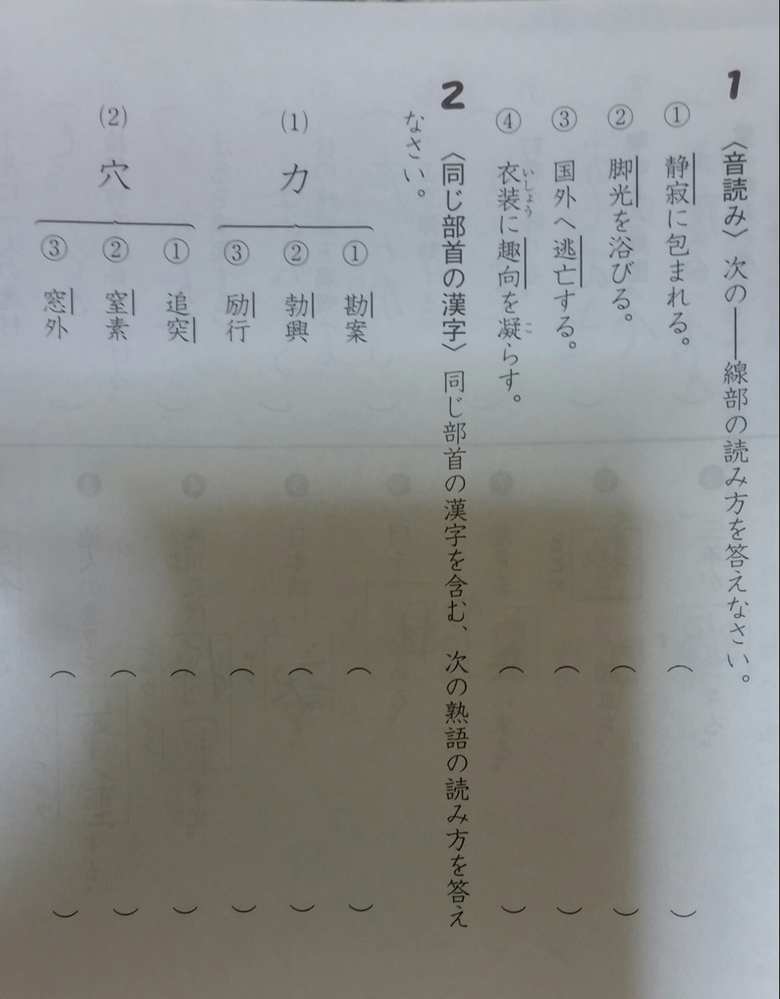 1 〈音読み〉 次の――線部の読み方を答えなさい。
① 静寂に包まれる。( )
② 脚光を浴びる。( )
③ 国外へ逃亡する。( )
④ 衣装に趣向を凝らす。( )
いしょう
こ
2 〈同じ部首の漢字〉 同じ部首の漢字を含む、次の熟語の読み方を答え
なさい。
(1) 力
① 勘案( )
② 勃興( )
③ 励行( )
(2) 穴
① 追突( )
② 窒素( )
③ 窓外( )